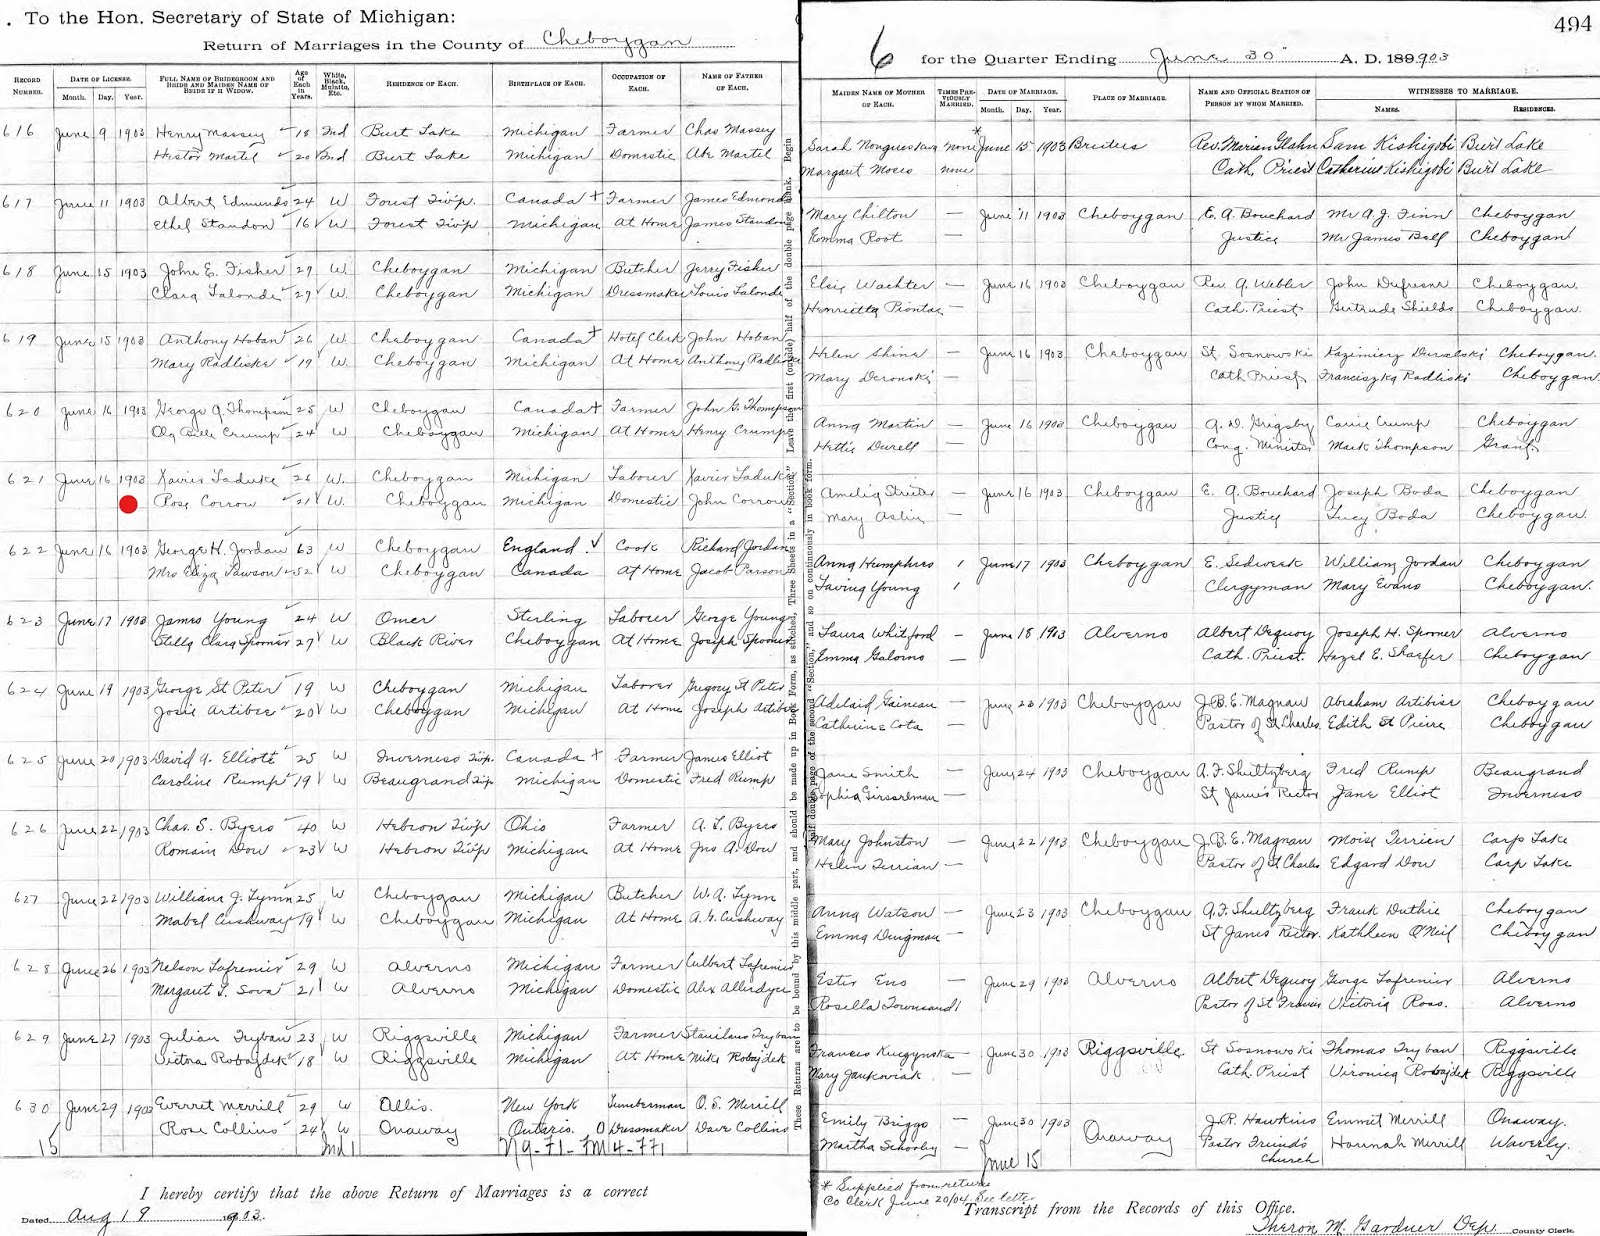 . To the Hon. Secretary of State of Michigan:
Return of Marriages in the County of Cheboygan
RECORD NUMBER. DATE OF LICENSE. Month. Day. Year. FULL NAME OF BRIDEGROOM AND BRIDE AND MAIDEN NAME OF BRIDE IF A WIDOW. Age of Each in Years. White, Black, Mulatto, Etc. RESIDENCE OF EACH. BIRTHPLACE OF EACH. OCCUPATION OF EACH. NAME OF FATHER OF EACH.
616 June 9 1903 Henry Massey 18 Ind Burt Lake Michigan Farmer Chas Massey
Hester Martel 20 Ind Burt Lake Michigan Domestic Abe Martel
617 June 11 1903 Albert Edmunds 24 W Forest Twp. Canada + Farmer James Edmonds
Ethel Standon 16 W Forest Twp Michigan At Home James Standon
618 June 15 1903 John E. Fisher 29 W. Cheboygan Michigan Butcher Jerry Fisher
Clara Lalonde 27 W. Cheboygan Michigan Dressmaker Louis Lalonde
619 June 15 1903 Anthony Hoban 26 W. Cheboygan Canada + Hotel Clerk John Hoban
Mary Radliske 19 W. Cheboygan Michigan At Home Anthony Radliske
620 June 16 1903 George A. Thompson 25 W Cheboygan Canada + Farmer John G. Thompson
Ola Belle Crump 24 W Cheboygan Michigan At Home Henry Crump
621 June 16 1903 Xavier Laduke 26 W. Cheboygan Michigan Labourer Xavier Laduke
Rose Corrow 21 W. Cheboygan Michigan Domestic John Corrow
622 June 16 1903 George H. Jordan 63 W Cheboygan England. Cook Richard Jordan
Mrs Eliza Lawson 52 W Cheboygan Canada At Home Jacob Parson
623 June 17 1903 James Young 24 W Omer Sterling Labourer George Young
Stella Clara Spooner 27 W Black River Cheboygan At Home Joseph Spooner
624 June 19 1903 George St Peter 19 W Cheboygan Michigan Laborer Gregory St Peter
Josie Artibee 20 W Cheboygan Michigan At Home Joseph Artibee
625 June 20 1903 David A. Elliott 25 W Inverness Twp. Canada + Farmer James Elliot
Caroline Rump 19 W Beaugrand Twp Michigan Domestic Fred Rump
626 June 22 1903 Chas. S. Byers 40 W Hebron Twp Ohio Farmer A. L. Byers
Romain Dow 23 W Hebron Twp Michigan At Home Jno A. Dow
627 June 22 1903 William J. Lynn 25 W Cheboygan Michigan Butcher W. A. Lynn
Mabel Cushway 19 W Cheboygan Michigan At Home A. G. Cushway
628 June 26 1903 Nelson Lafrenier 29 W Alverno Michigan Farmer Culbert Lafrenier
Margaret L. Sova 21 W Alverno Michigan Domestic Alex Alleridyce
629 June 27 1903 Julian Tryban 23 W Riggsville Michigan Farmer Stanilaus Tryban
Victoria Robajdek 18 W Riggsville Michigan At Home Mike Robajdek
630 June 29 1903 Everret Merrill 29 W Allis. New York Lumberman O. S. Merrill
Rose Collins 24 W Onaway Ontario. O Dressmaker Dave Collins
15 Ind 1
I hereby certify that the above Return of Marriages is a correct
Dated Aug 19 1903.
These Returns are to be bound by this middle part, and should be made up in Book Form, as stitched, Three Sheets in a "Section." Leave the first (outside) half of the double page blank. Begin
half double page of the second "Section," and so on continuously in book form.
494
6 for the Quarter Ending June 30" A. D. 1903
MAIDEN NAME OF MOTHER OF EACH. TIMES PREVIOUSLY MARRIED. DATE OF MARRIAGE. Month. Day. Year. PLACE OF MARRIAGE. NAME AND OFFICIAL STATION OF PERSON BY WHOM MARRIED. WITNESSES TO MARRIAGE. NAMES. RESIDENCES.
Sarah none * June 15 1903 Brutus Rev. Marian Glahn Sam Kishigobi Burt Lake
Margaret Moces none Cath. Priest Catherine Kishigobi Burt Lake
Mary Chilton — June 11 1903 Cheboygan E. A. Bouchard Mr A. J. Finn Cheboygan
Romma Root — Justice Mr James Bell Cheboygan
Elsie Wachter — June 16 1903 Cheboygan Rev. A. Webler John Dufresne Cheboygan.
Henrietta Piontac — Cath. Priest Gertrude Shields Cheboygan.
Helen Shine — June 16 1903 Cheboygan St. Sosnowski Kazimierz Cheboygan.
Mary Deronski — Cath Priest Franciszka Radliski Cheboygan.
Anna Martin — June 16 1903 Cheboygan A. D. Grigsby Carrie Crump Cheboygan
Hettie Durell — Cong. Minister Mark Thompson Grant.
Amelia Streeter — June 16 1903 Cheboygan E. A. Bouchard Joseph Boda Cheboygan
Mary Aslin — Justice Lucy Boda Cheboygan.
Anna Humphries 1 June 17 1903 Cheboygan E. Sedweek William Jordan Cheboygan
Lavina Young 1 Clergyman Mary Evans Cheboygan.
Laura Whitford — June 18 1903 Alverno Albert Dequoy Joseph H. Spooner Alverno
Emma Galorno — Cath. Priest. Hazel E. Shaefer Cheboygan
Adelaid Gaineau — June 23 1903 Cheboygan J. B. E. Magnan Abraham Artibier Cheboygan
Catherine Cota — Pastor of St Charles. Edith St Pierre Cheboygan
Jane Smith — June 24 1903 Cheboygan A. F. Shultzberg Fred Rump Beaugrand
Sophia — St James Rector Jane Elliot Inverness
Mary Johnston — June 22 1903 Cheboygan J. B. E. Magnan Moise Terrien Carp Lake
Helen Terrian — Pastor of St Charles Edgard Dow Carp Lake
Anna Watson — June 23 1903 Cheboygan A. F. Shultzberg Frank Duthie Cheboygan
Emma Dingman — St James Rector. Kathleen O'Neil Cheboygan
Ester Eno — June 29 1903 Alverno Albert Dequoy George Lafrenier Alverno
Rosella Townsand 1 Pastor of St Francis Victoria Ross. Alverno
Francis Kuczynska — June 30 1903 Riggsville St Sosnowski Thomas Tryban Riggsville
Mary Jankoviak — Cath. Priest Vironica Robajdek Riggsville
Emily Briggs — June 30 1903 Onaway J. R. Hawkins Emmit Merrill Onaway.
Martha Schooley — Pastor Friends Church Hannah Merrill Waverly.
June 15
* Supplied from return
Co Clerk June 20/04. See letter
Transcript from the Records of this Office.
Theron M. Gardner Dep. County Clerk.